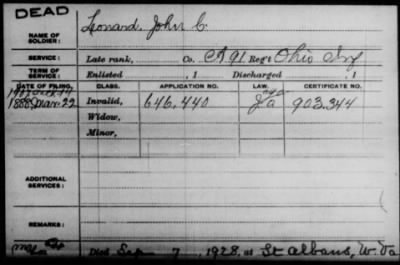 DEAD
NAME OF SOLDIER: Leonard, John C.
SERVICE: Late rank, Co. A 91 Reg't Ohio Inf
TERM OF SERVICE: Enlisted , 1 Discharged , 1
DATE OF FILING. CLASS. APPLICATION NO. LAW. CERTIFICATE NO.
1888, Mar. 22 Invalid, 646,440 Ja 903,344
Widow,
Minor,
ADDITIONAL SERVICES:
REMARKS:
Died Sep 7, 1928, at St Albans, W. Va